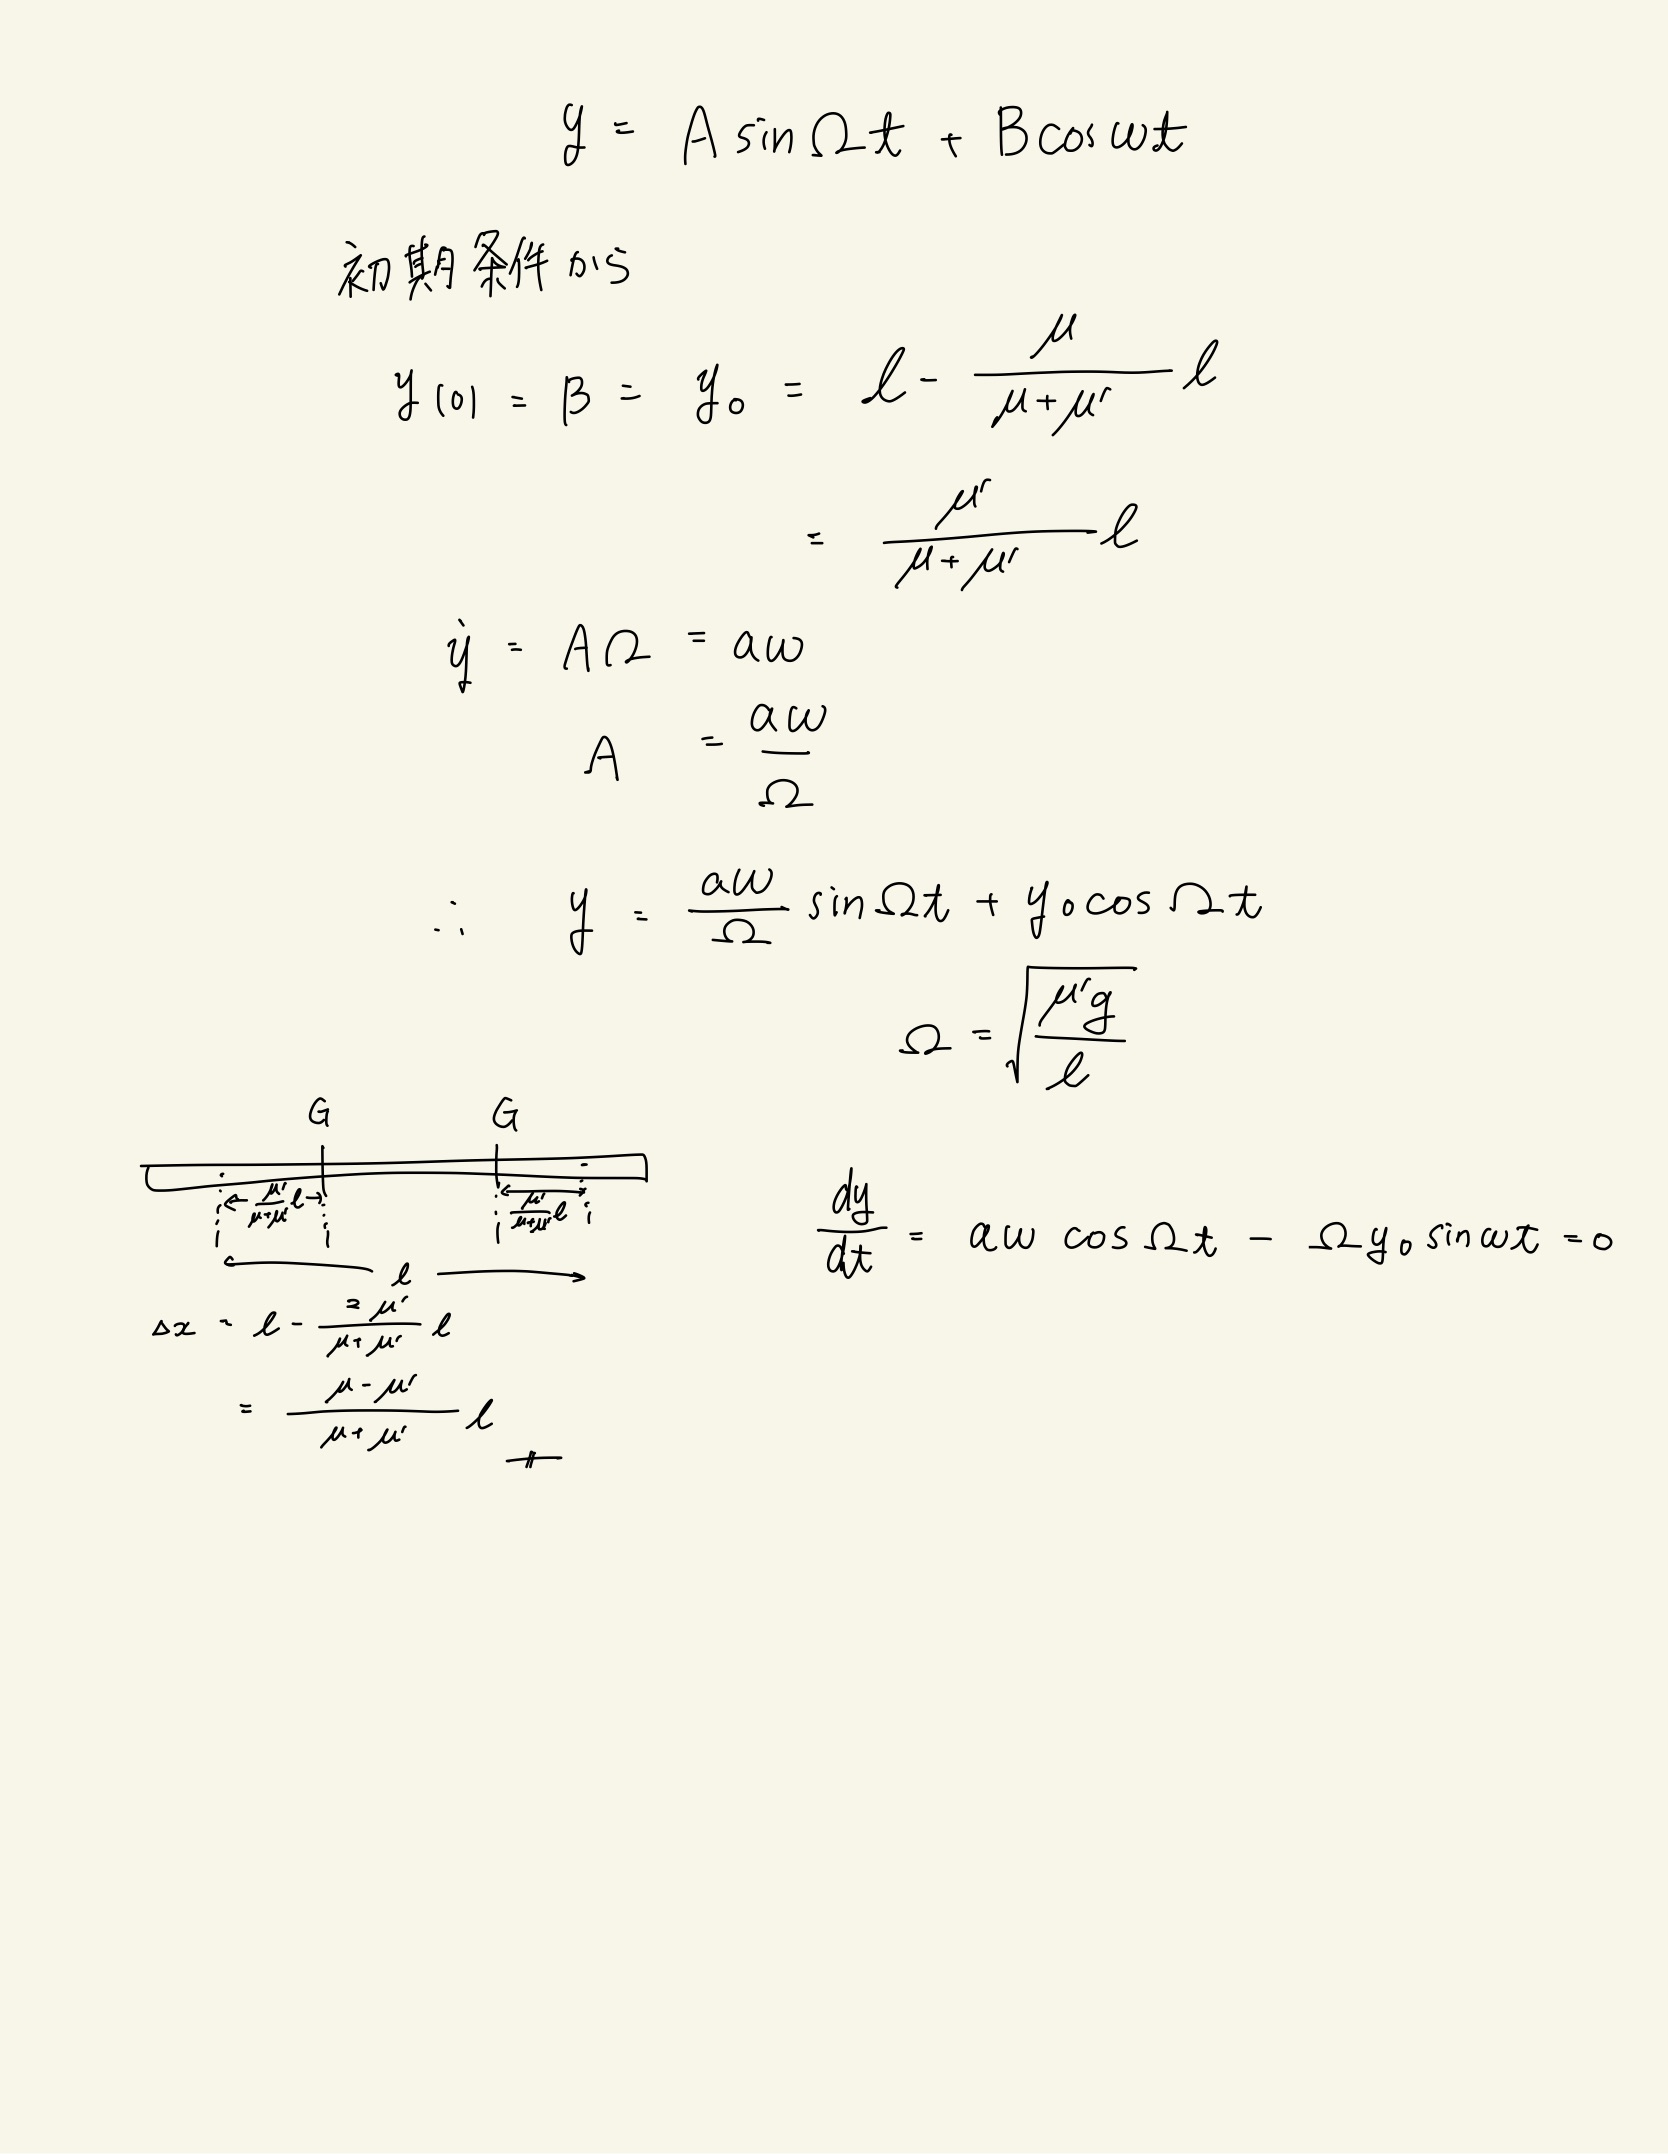 y = A sin Ωt + B cos ωt
初期条件から
y(0) = B = y₀ = l - μ/(μ+μ') l
= μ'/(μ+μ') l
ẏ = AΩ = aω
A = aω/Ω
∴ y = aω/Ω sin Ωt + y₀ cos Ωt
Ω = √(μ'g/l)
G G
μ'/(μ+μ') l μ'/(μ+μ') l
l
Δx = l - 2μ'/(μ+μ') l
= (μ-μ')/(μ+μ') l
dy/dt = aω cos Ωt - Ωy₀ sin ωt = 0